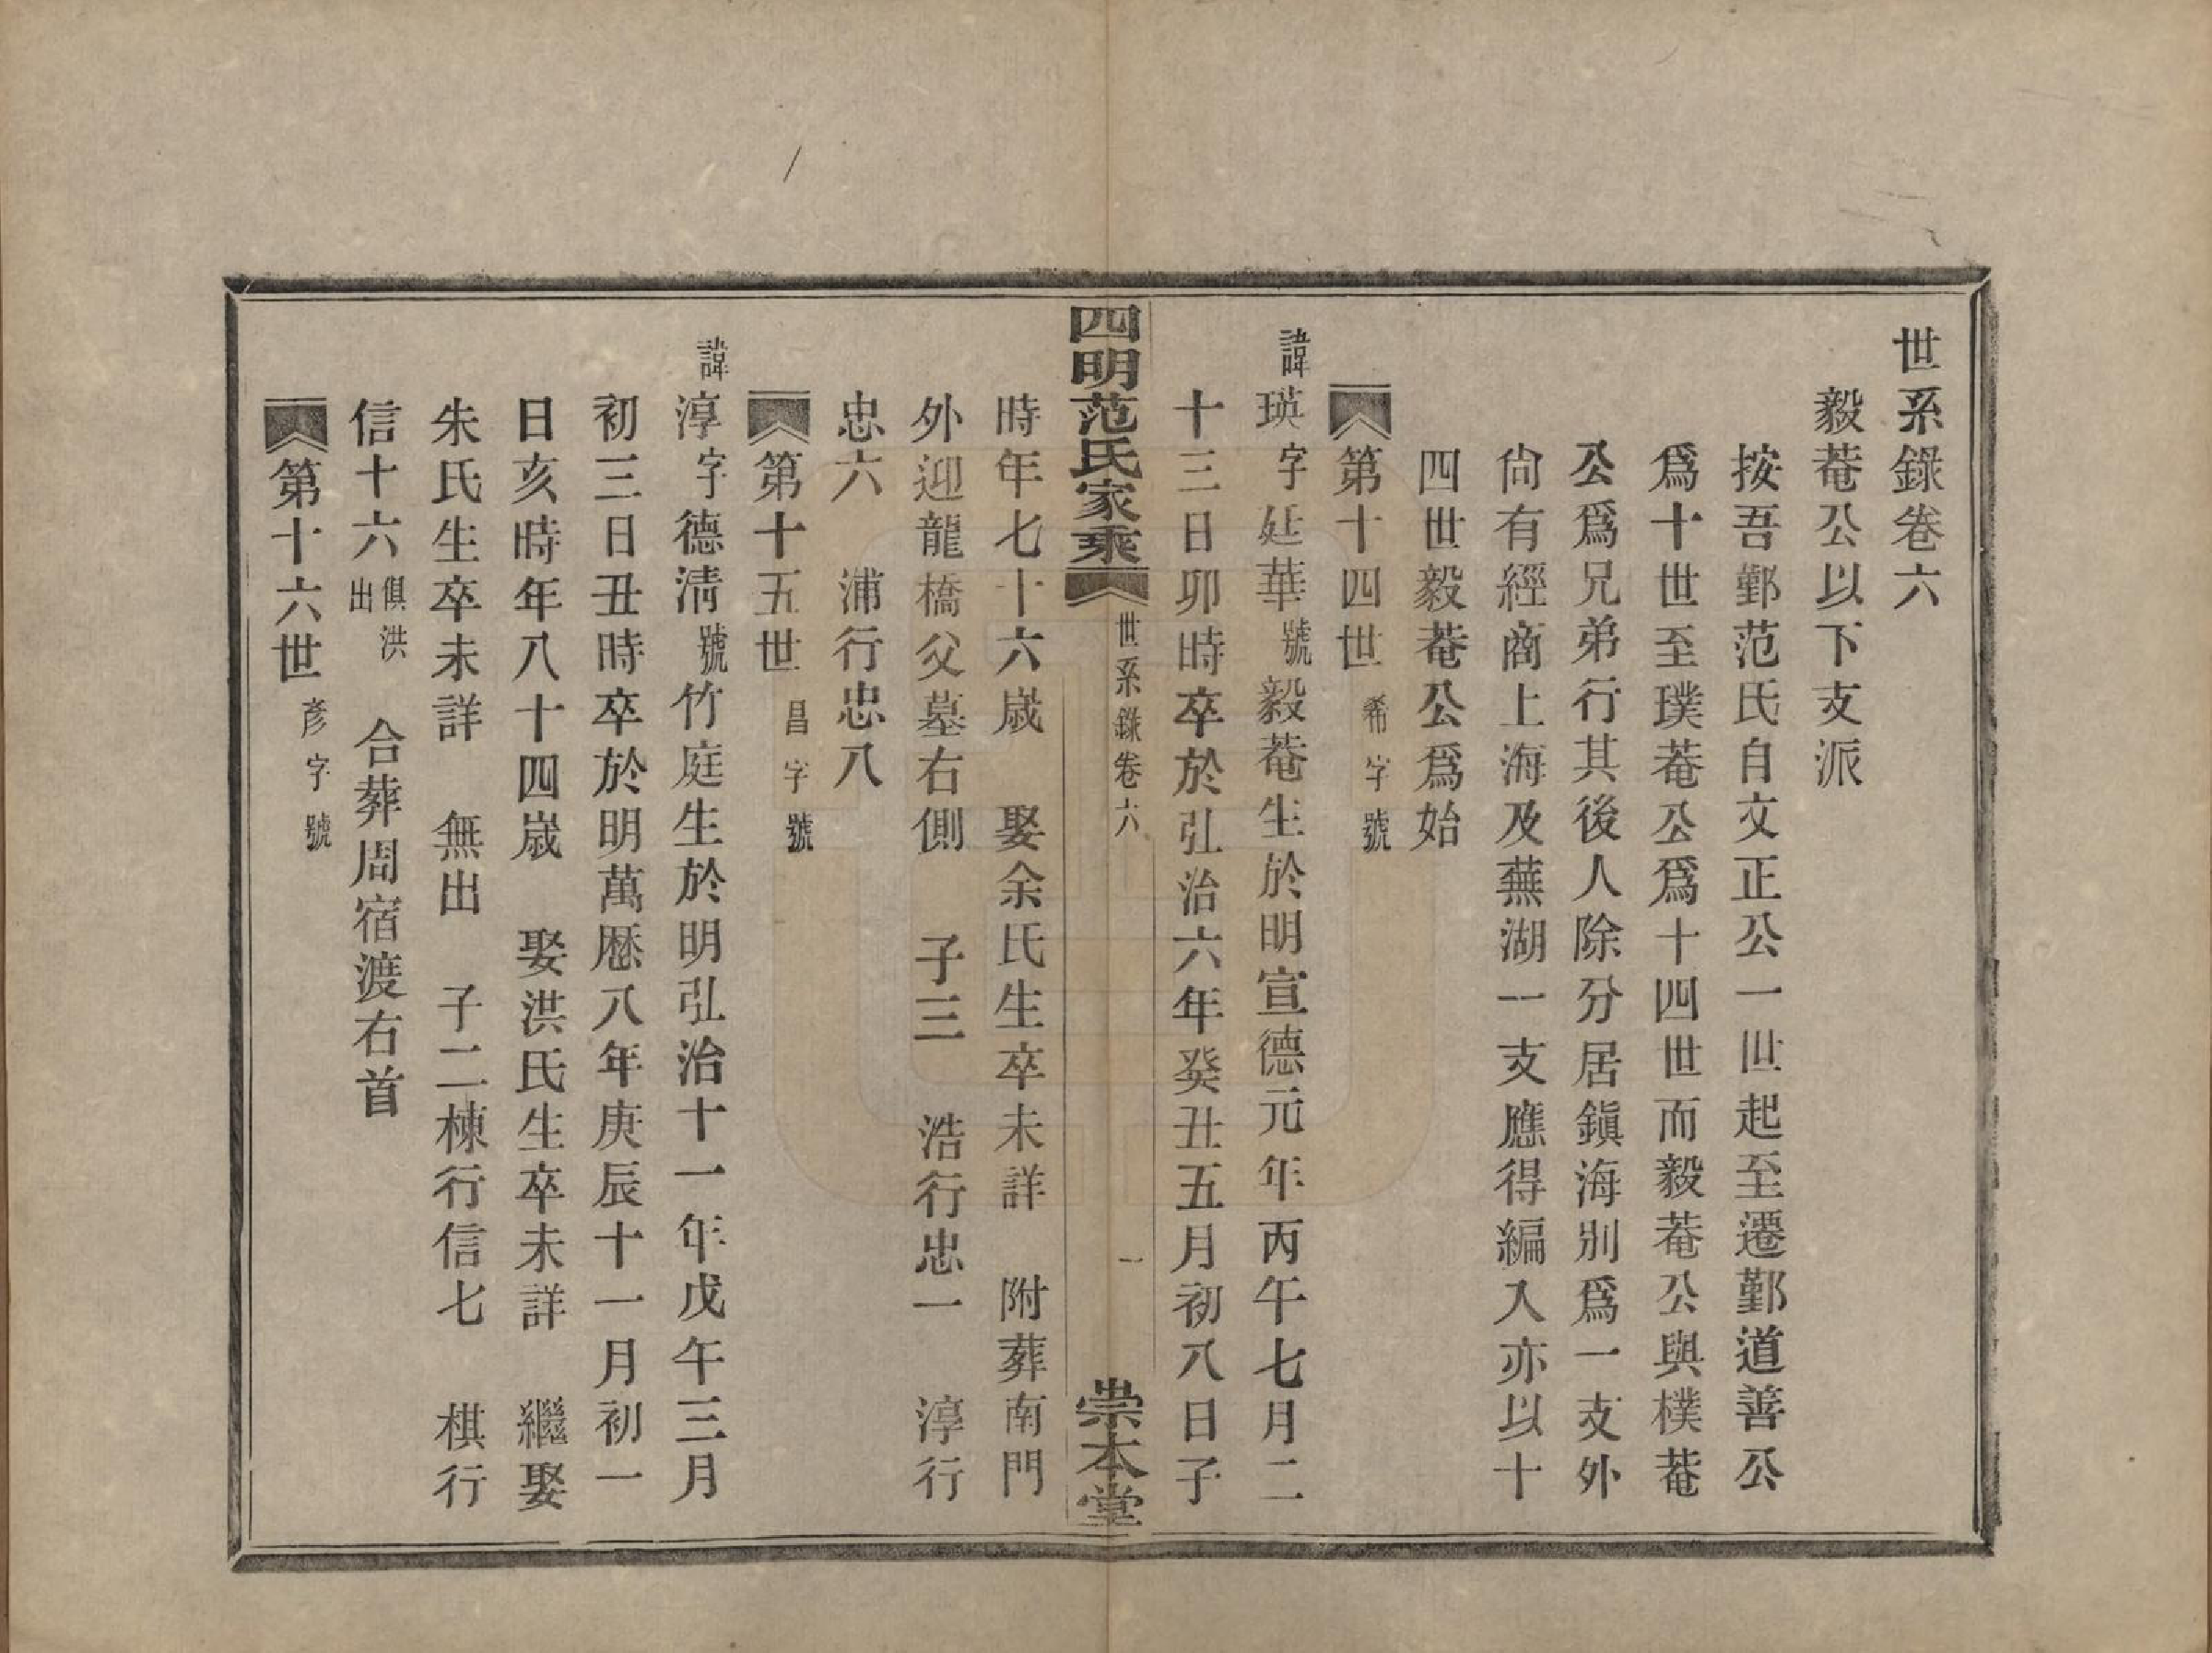 世系錄卷六
毅菴公以下支派
按吾鄞范氏自文正公一世起至遷鄞道善公
爲十世至璞菴公爲十四世而毅菴公與樸菴
公爲兄弟行其後人除分居鎭海別爲一支外
尙有經商上海及蕪湖一支應得編入亦以十
四世毅菴公爲始
第十四世 希字號
諱瑛字廷華號毅菴生於明宣德元年丙午七月二
十三日卯時卒於弘治六年癸丑五月初八日子
四明范氏家乘 世系錄卷六 一 崇本堂
時年七十六歲 娶余氏生卒未詳 附葬南門
外迎龍橋父墓右側 子三 浩行忠一 淳行
忠六 浦行忠八
第十五世 昌字號
諱淳字德淸號竹庭生於明弘治十一年戊午三月
初三日丑時卒於明萬歷八年庚辰十一月初一
日亥時年八十四歲 娶洪氏生卒未詳 繼娶
朱氏生卒未詳 無出 子二棟行信七 棋行
信十六俱洪出 合葬周宿渡右首
第十六世 彥字號